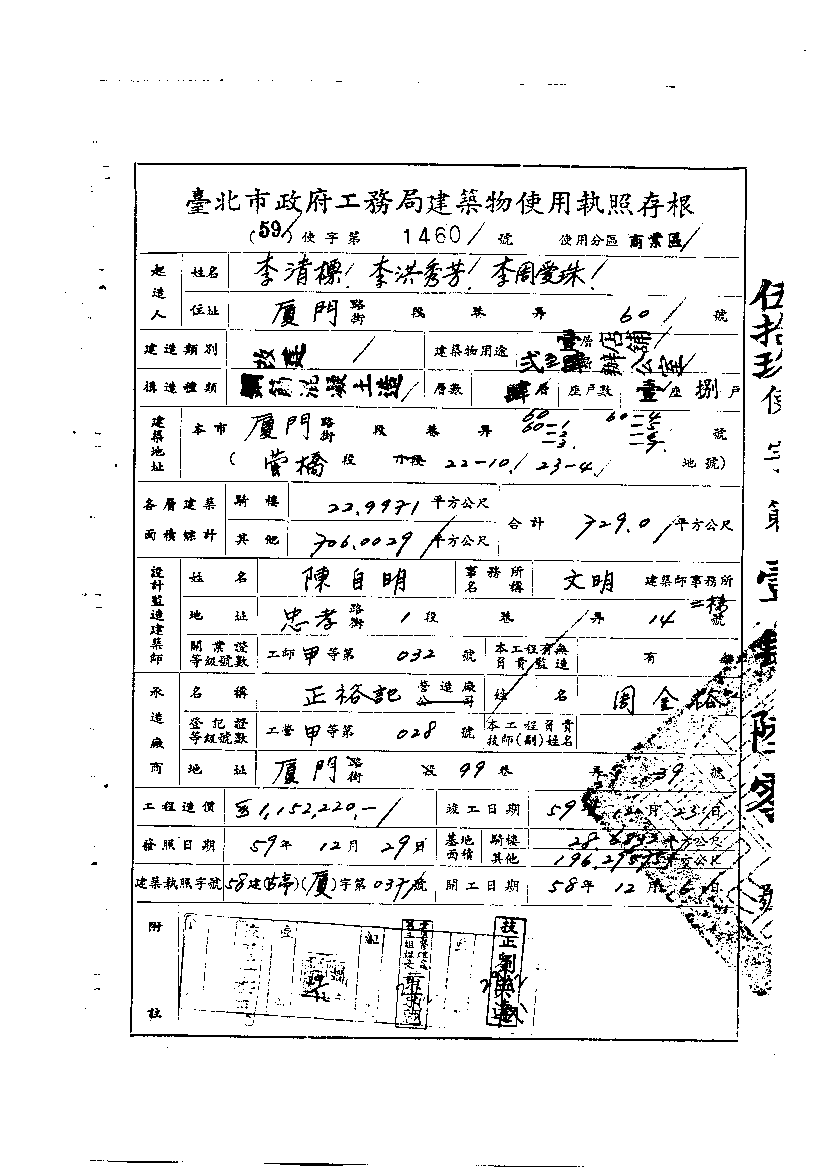 臺北市政府工務局建築物使用執照存根
(59)使字第 1460 號 使用分區 商業區
起造人 姓名 李清標 李洪秀芳 李周愛珠
住址 厦門路街 段 巷 弄 60 號
建造類別 改建 建築物用途 壹層店舖 弍至肆層辦公室
構造種類 鋼筋混凝土造 層數 肆層 座戶數 壹座捌戶
建築地址 本市 厦門路街 段 巷 弄 60 60-1 60-4 號
( 段 小段 22-10 23-4 地號)
各層建築面積總計 騎樓 22.9971平方公尺 合計 729.0平方公尺
其他 706.0029平方公尺
設計監造建築師 姓名 陳自明 事務所名稱 文明 建築師事務所
地址 忠孝路街 1段 巷 弄 14 號 二樓
開業證等級號數 工師甲等第 032 號 本工程有無負責監造 有
承造廠商 名稱 正裕記 營造廠公司 姓名 周金裕
登記證等級號數 工營甲等第 028 號 本工程負責技師(副)姓名
地址 厦門路街 段 99巷 弄 39 號
工程造價 1,152,220.- 竣工日期 59年12月23日
發照日期 59年12月29日 基地面積 騎樓 平方公尺
其他 平方公尺
建築執照字號 58建( )(厦)字第037號 開工日期 58年12月 日
附註
技正劉
伍拾玖使字第壹 陸零號